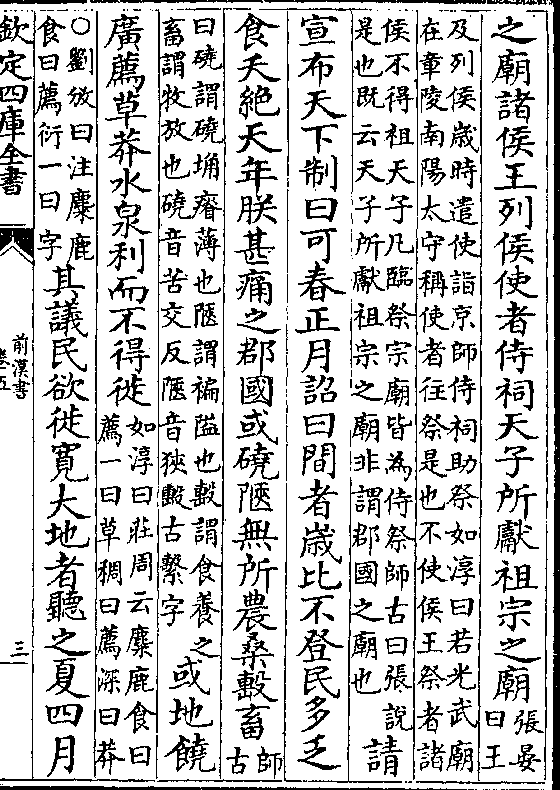 之廟諸侯王列侯使者侍祠天子所獻祖宗之廟張晏曰王
及列侯歲時遣使詣京師侍祠助祭如淳曰若光武廟
在章陵南陽太守稱使者往祭是也不使侯王祭者諸
侯不得祖天子凡臨祭宗廟皆為侍祭師古曰張說
是也既云天子所獻祖宗之廟非謂郡國之廟也
請
宣布天下制曰可春正月詔曰間者歲比不登民多乏
食夭絶天年朕甚痛之郡國或磽陿無所農桑毄畜師古
曰磽謂磽埆瘠薄也陿謂褊隘也毄謂食養之
畜謂牧放也磽音苦交反陿音狹毄古繫字
或地饒
廣薦草莽水泉利而不得徙如淳曰莊周云麋鹿食曰
薦一曰草稠曰薦深曰莽
○劉攽曰注麋鹿
食曰薦衍一曰字
其議民欲徙寛大地者聽之夏四月
欽定四庫全書
前漢書
卷五
三